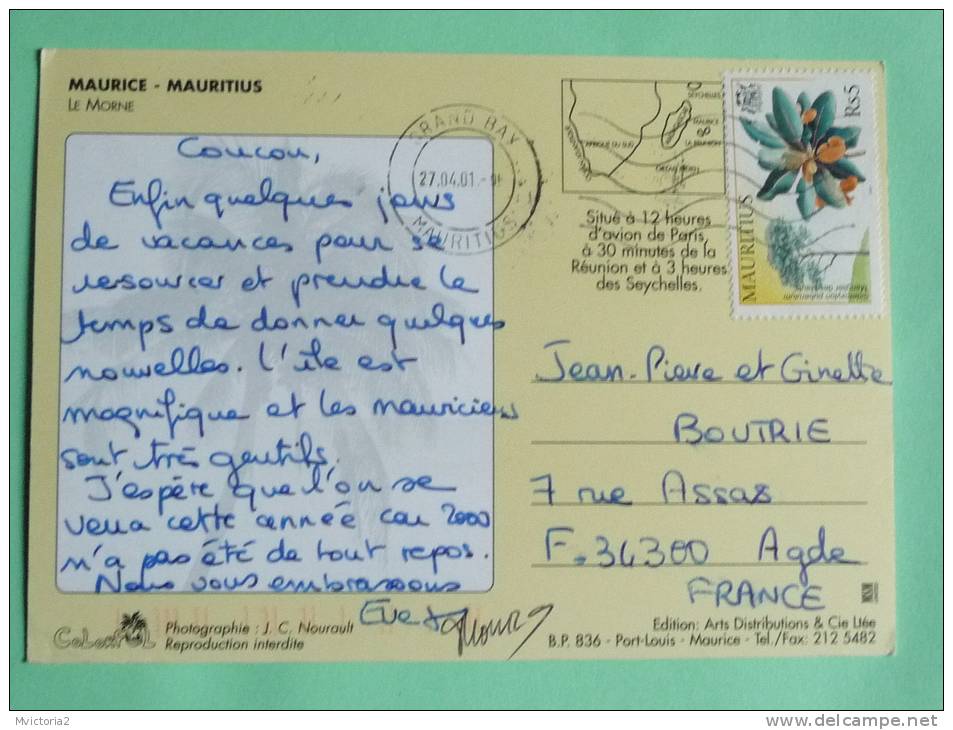 MAURICE - MAURITIUS
LE MORNE
GRAND BAY
27.04.01
MAURITIUS
SEYCHELLES
MAURICE
LA REUNION
AFRIQUE DU SUD
Situé à 12 heures
d'avion de Paris,
à 30 minutes de la
Réunion et à 3 heures
des Seychelles.
MAURITIUS
Rs5
Coucou,
Enfin quelques jours
de vacances pour se
ressourcer et prendre le
temps de donner quelques
nouvelles. L'île est
magnifique et les mauriciens
sont très gentils.
J'espère que l'on se
verra cette année car 2000
n'a pas été de tout repos.
Nous vous embrassons
Eve &
Jean-Pierre et Ginette
BOUTRIE
7 rue Assas
F.34300 Agde
FRANCE
Photographie : J. C. Nourault
Reproduction interdite
Edition: Arts Distributions & Cie Ltée
B.P. 836 - Port-Louis - Maurice - Tel./Fax: 212 5482
Mvictoria2
www.delcampe.net